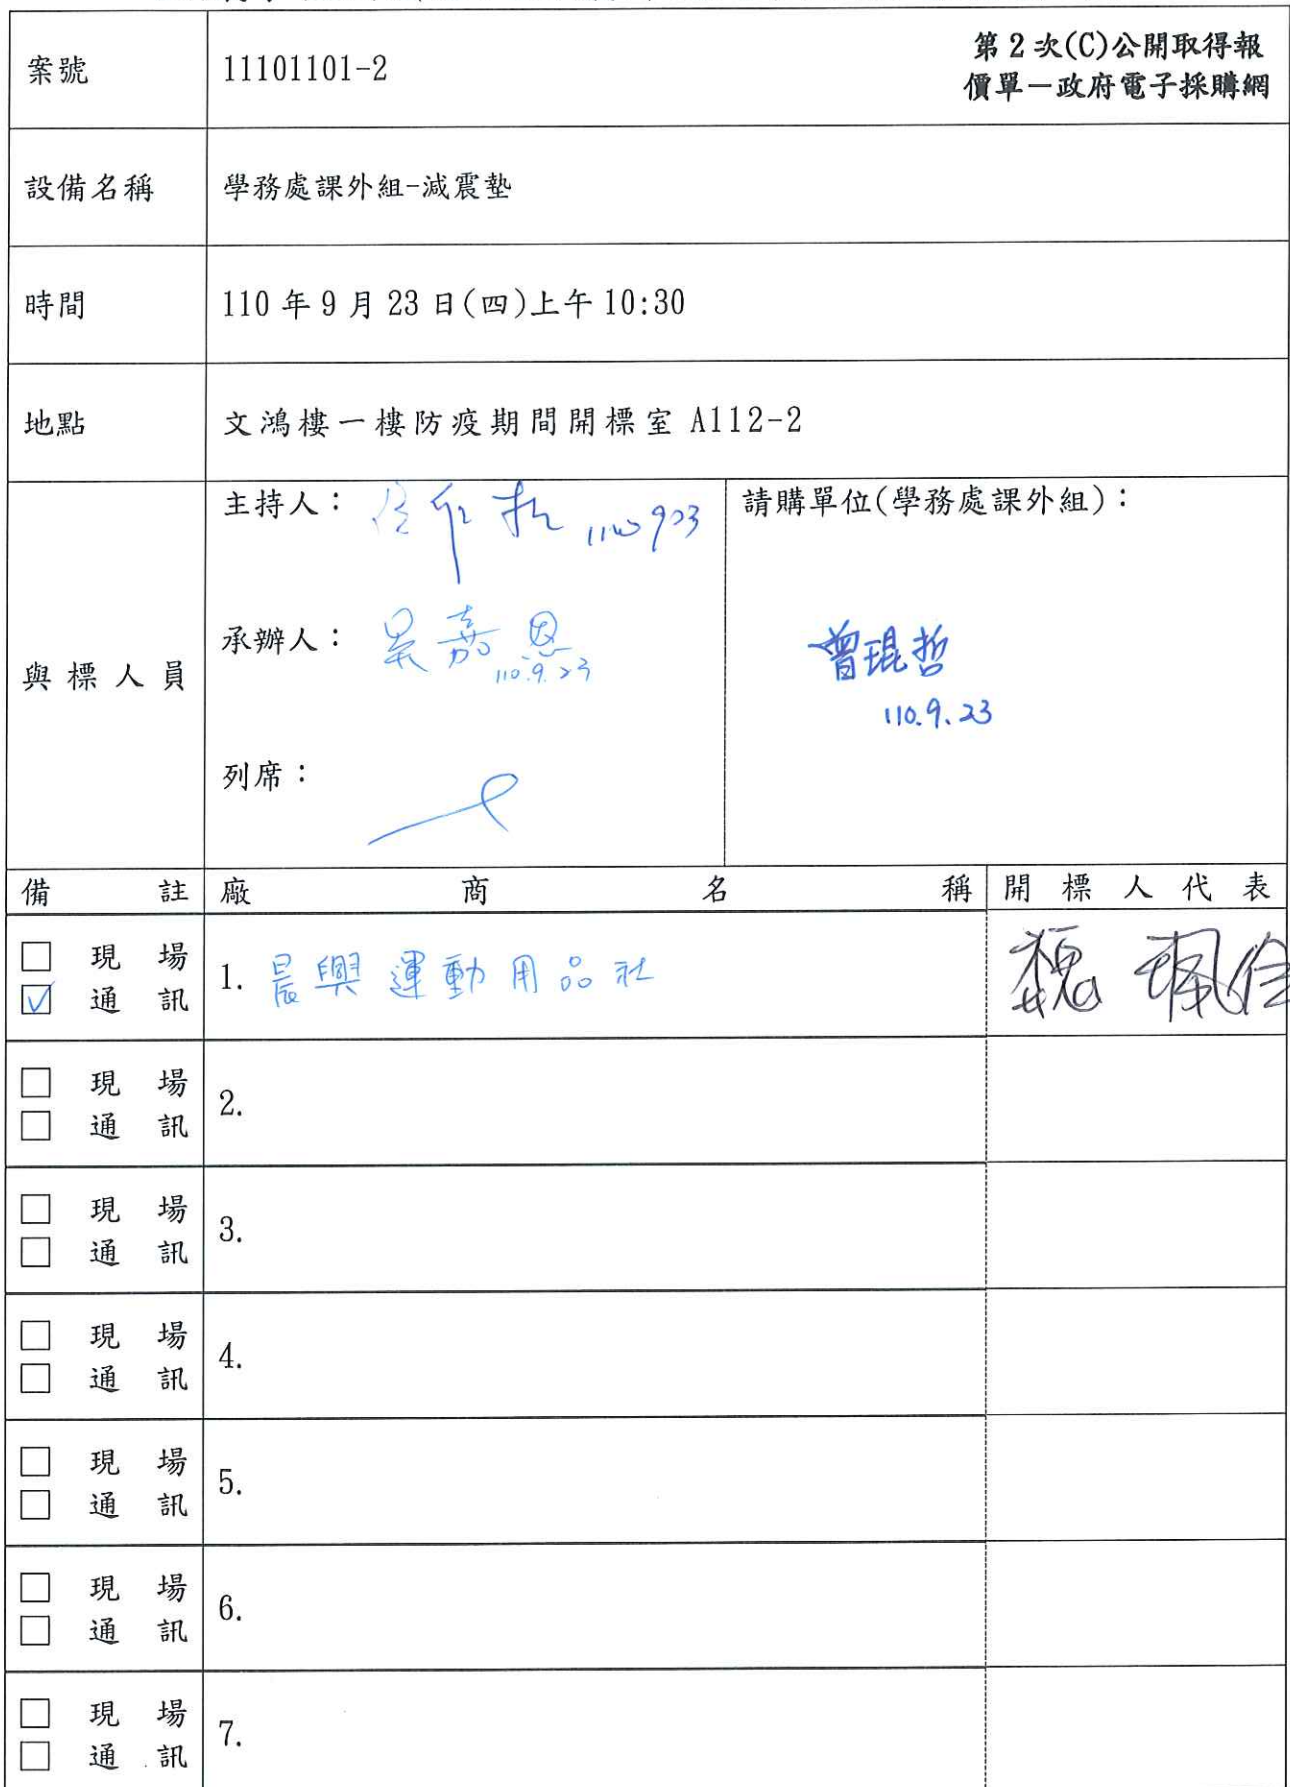 案號 11101101-2 第2次(C)公開取得報
價單－政府電子採購網
設備名稱 學務處課外組-減震墊
時間 110年9月23日(四)上午10:30
地點 文鴻樓一樓防疫期間開標室 A112-2
與標人員
主持人：
承辦人：吳嘉恩
110.9.23
列席：
請購單位(學務處課外組)：
曾琨哲
110.9.23
備註 廠商名稱 開標人代表
□ 現場
☑ 通訊
1. 晨興運動用品社
魏珮
□ 現場
□ 通訊
2.
□ 現場
□ 通訊
3.
□ 現場
□ 通訊
4.
□ 現場
□ 通訊
5.
□ 現場
□ 通訊
6.
□ 現場
□ 通訊
7.